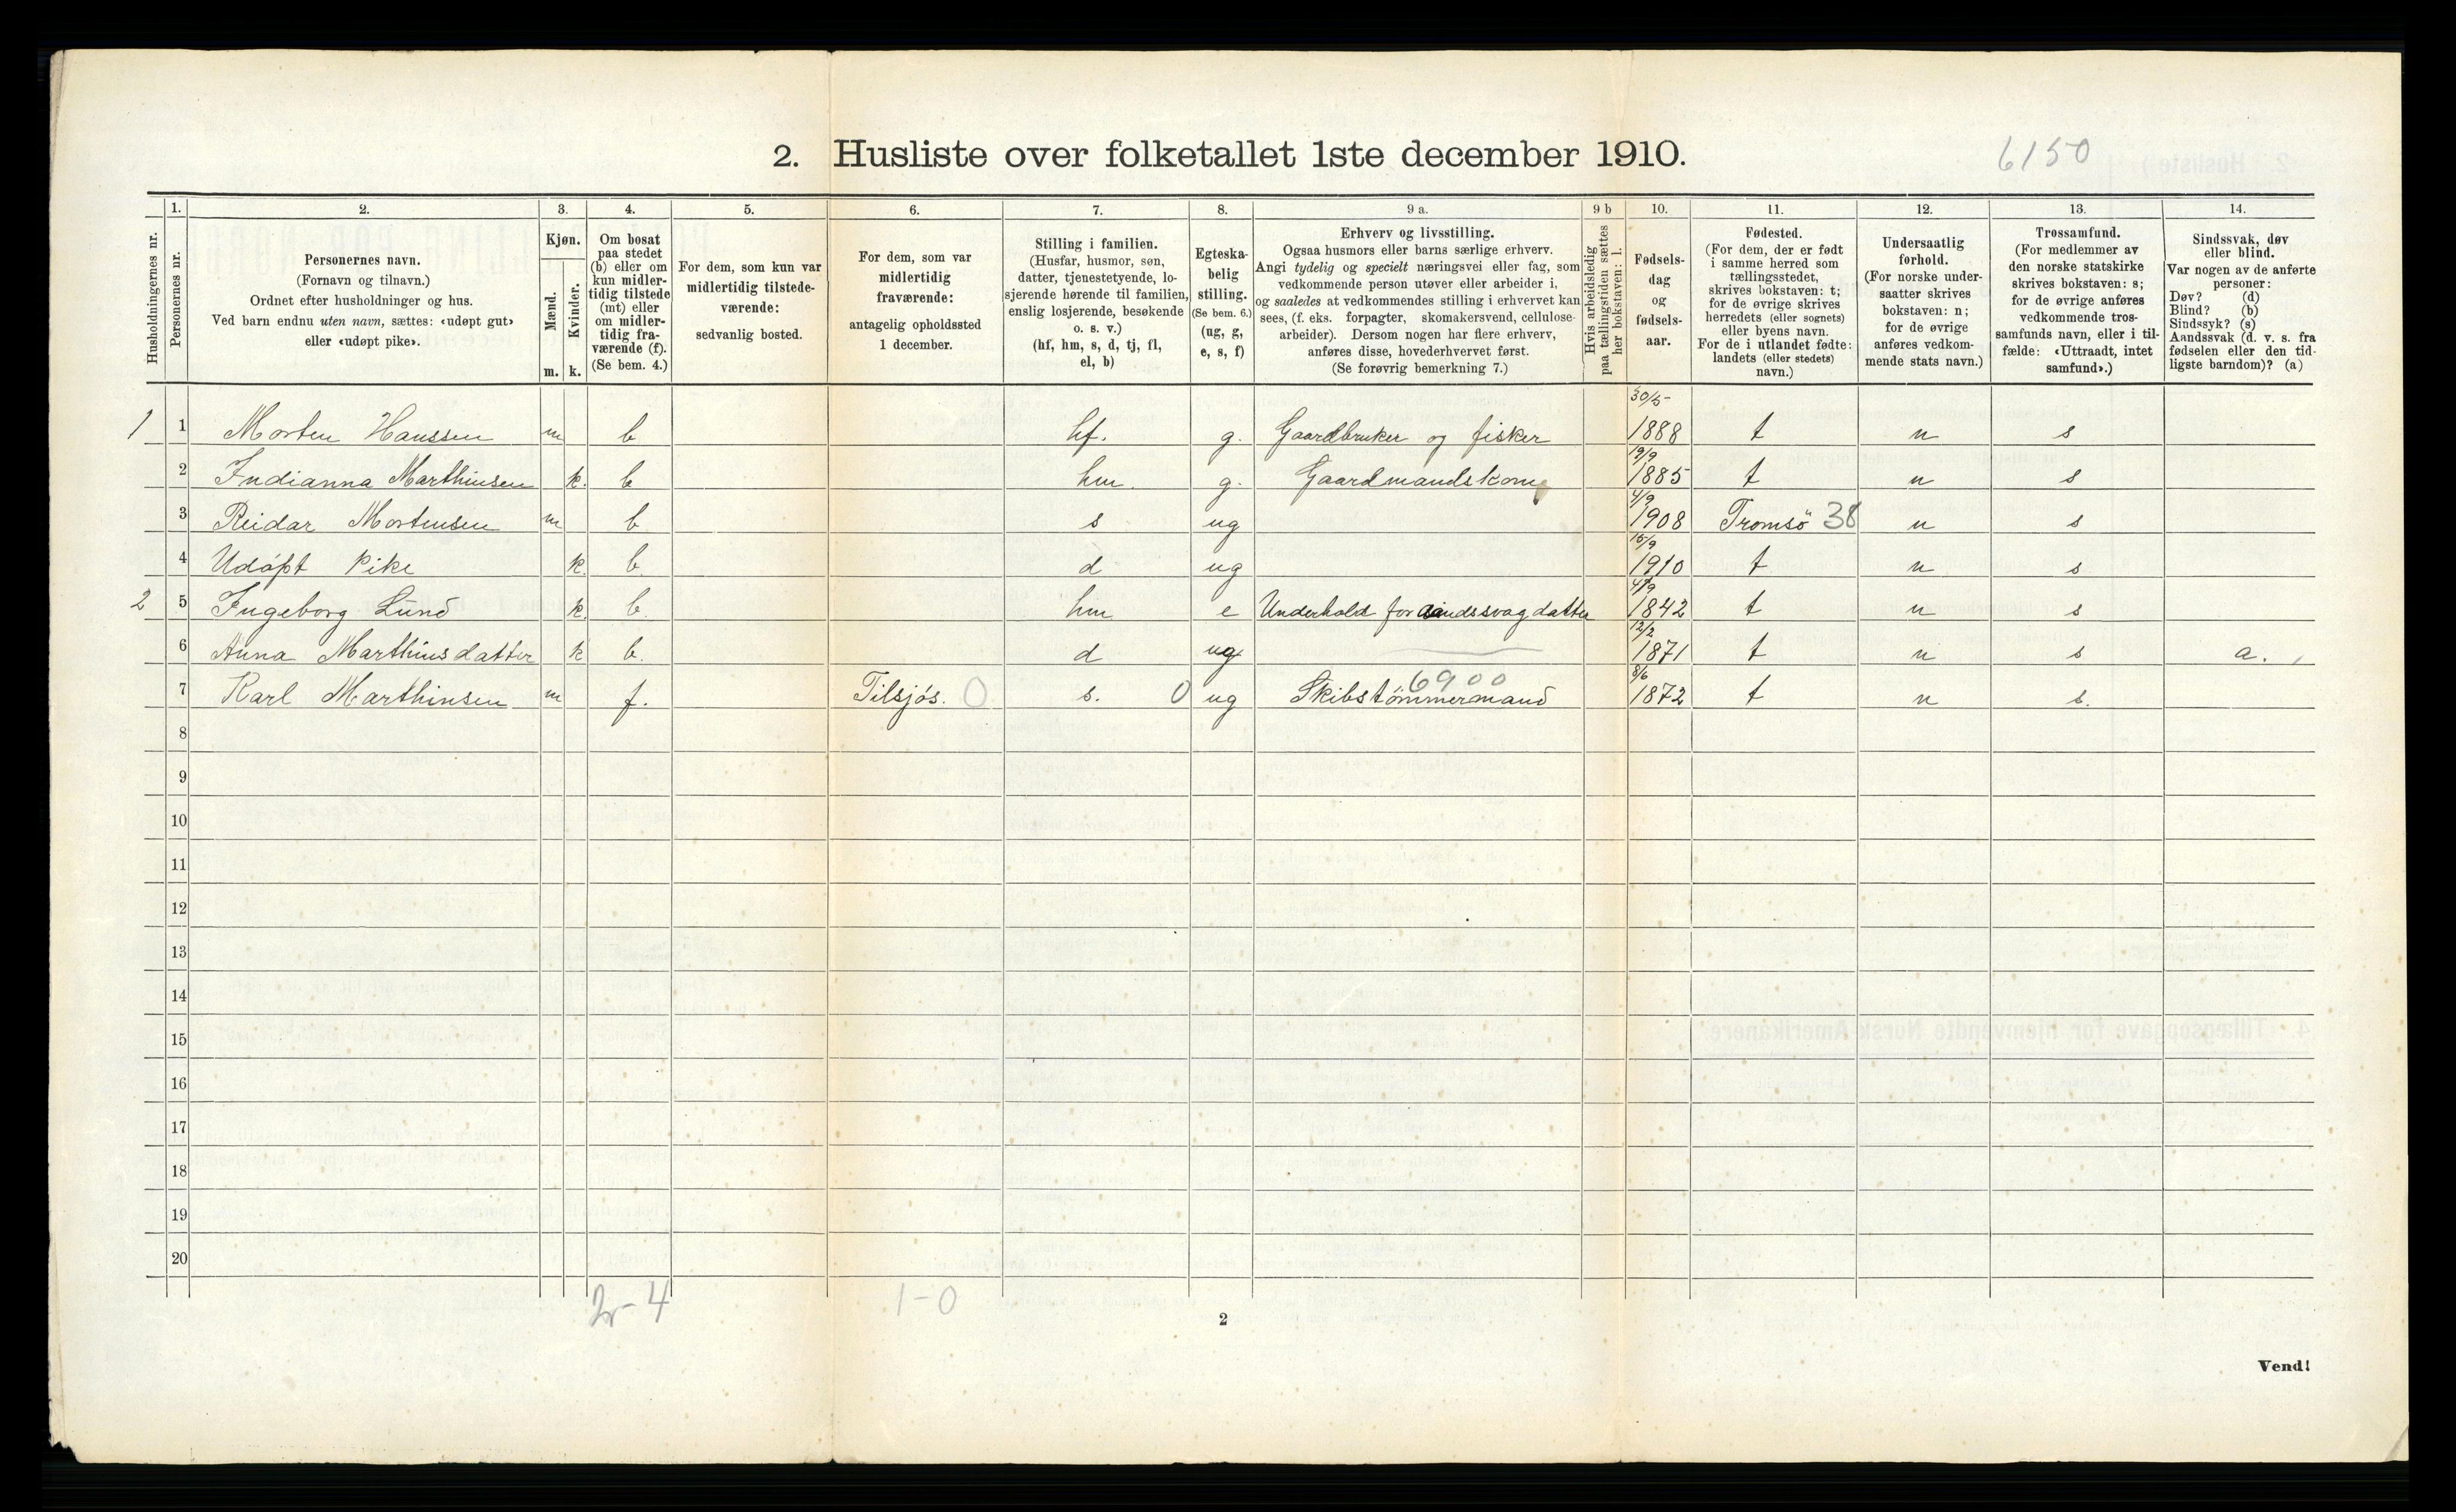 2. Husliste over folketallet 1ste december 1910.
6150
Husholdningernes nr.
1. Personernes nr.
2. Personernes navn.
(Fornavn og tilnavn.)
Ordnet efter husholdninger og hus.
Ved barn endnu uten navn, sættes: «udøpt gut»
eller «udøpt pike».
3. Kjøn.
Mænd. m.
Kvinder. k.
4. Om bosat
paa stedet
(b) eller om
kun midler-
tidig tilstede
(mt) eller
om midler-
tidig fra-
værende (f).
(Se bem. 4.)
5. For dem, som kun var
midlertidig tilstede-
værende:
sedvanlig bosted.
6. For dem, som var
midlertidig
fraværende:
antagelig opholdssted
1 december.
7. Stilling i familien.
(Husfar, husmor, søn,
datter, tjenestetyende, lo-
sjerende hørende til familien,
enslig losjerende, besøkende
o. s. v.)
(hf, hm, s, d, tj, fl,
el, b)
8. Egteska-
belig
stilling.
(Se bem. 6.)
(ug, g,
e, s, f)
9 a. Erhverv og livsstilling.
Ogsaa husmors eller barns særlige erhverv.
Angi tydelig og specielt næringsvei eller fag, som
vedkommende person utøver eller arbeider i,
og saaledes at vedkommendes stilling i erhvervet kan
sees, (f. eks. forpagter, skomakersvend, cellulose-
arbeider). Dersom nogen har flere erhverv,
anføres disse, hovederhvervet først.
(Se forøvrig bemerkning 7.)
9 b Hvis arbeidsledig
paa tællingstiden sættes
her bokstaven: l.
10. Fødsels-
dag
og
fødsels-
aar.
11. Fødested.
(For dem, der er født
i samme herred som
tællingsstedet,
skrives bokstaven: t;
for de øvrige skrives
herredets (eller sognets)
eller byens navn.
For de i utlandet fødte:
landets (eller stedets)
navn.)
12. Undersaatlig
forhold.
(For norske under-
saatter skrives
bokstaven: n;
for de øvrige
anføres vedkom-
mende stats navn.)
13. Trossamfund.
(For medlemmer av
den norske statskirke
skrives bokstaven: s;
for de øvrige anføres
vedkommende tros-
samfunds navn, eller i til-
fælde: «Uttraadt, intet
samfund».)
14. Sindssvak, døv
eller blind.
Var nogen av de anførte
personer:
Døv? (d)
Blind? (b)
Sindssyk? (s)
Aandssvak (d. v. s. fra
fødselen eller den tid-
ligste barndom)? (a)
1 1 Morten Hanssen m b hf. g. Gaardbruker og fisker 30/5- 1888 t n s
2 Indianna Marthinsen k. b hm. g. Gaardmandskone 19/9 1885 t n s
3 Reidar Mortensen m b s ug 4/9 1908 Tromsö 38 n s
4 Udøpt Pike k. b d ug 15/9 1910 t n s
2 5 Ingeborg Lund k. b. hm e Underhold for aandssvag datter 1842 t n s
6 Anna Marthinsdatter k b. d ug 12/2 1871 t n s a.
7 Karl Marthinsen m f. Tilsjøs. 0 s. 0 ug 6900 Skibstømmermand 8/6 1872 t n s.
8
9
10
11
12
13
14
15
16
17
18
19
20
2-4
1-0
2
Vend!